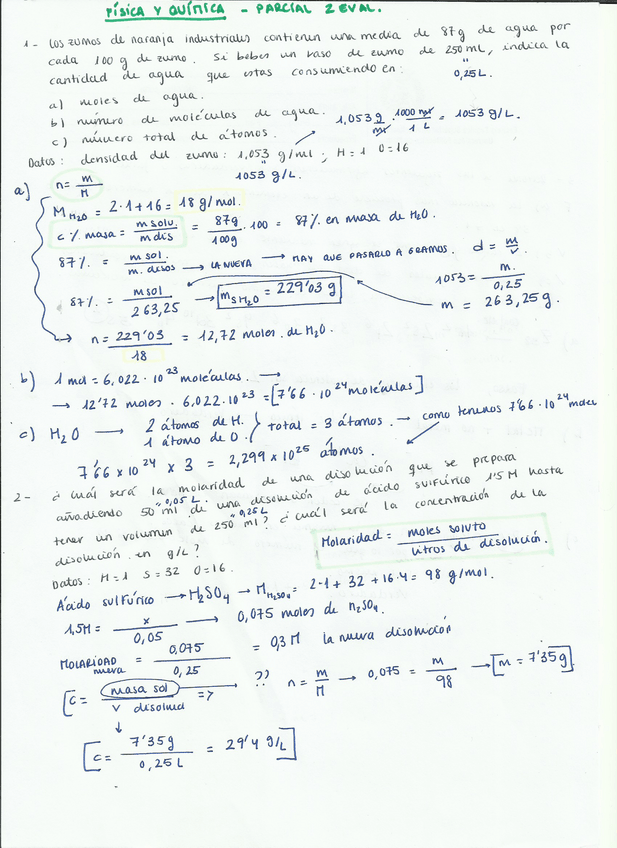 FÍSICA Y QUÍMICA - PARCIAL 2 EVAL.
1- Los zumos de naranja industriales contienen una media de 87g de agua por
cada 100 g de zumo. Si bebes un vaso de zumo de 250 mL, indica la
cantidad de agua que estas consumiendo en: " 0,25L.
a) moles de agua.
b) número de moléculas de agua.
c) número total de átomos.
1,053 g/ml · 1000 ml/1 L = 1053 g/L.
Datos: densidad del zumo: 1,053 g/ml ; H=1 O=16
" 1053 g/L.
a) n = m/M
M H₂O = 2·1+16 = 18 g/mol.
c % masa = m solu./m dis = 87g/100g · 100 = 87% en masa de H₂O.
87% = m sol./m. disos → LA NUEVA → HAY QUE PASARLO A GRAMOS. d = m/v
1053 = m./0,25
87% = m sol/263,25 → m s H₂O = 229'03 g
m = 263,25g.
→ n = 229'03/18 = 12,72 moles de H₂O.
b) 1 mol = 6,022·10²³ moléculas. →
→ 12'72 moles · 6,022·10²³ = [7'66·10²⁴ moléculas]
c) H₂O → 2 átomos de H. 1 átomo de O. } total = 3 átomos. → como tenemos 7'66·10²⁴ molec
7'66 x 10²⁴ x 3 = 2,299 x 10²⁵ átomos.
2- ¿Cuál será la molaridad de una disolución que se prepara
" 0,05 L
añadiendo 50 ml de una disolución de ácido sulfúrico 1'5 M hasta
" 0,25L
tener un volumen de 250 ml? ¿Cuál será la concentración de la
disolución en g/L?
Molaridad = moles soluto/litros de disolución.
Datos: H=1 S=32 O=16.
Ácido sulfúrico → H₂SO₄ → M H₂SO₄ = 2·1 + 32 + 16·4 = 98 g/mol.
1,5M = x/0,05 → 0,075 moles de H₂SO₄.
MOLARIDAD nueva = 0,075/0,25 = 0,3 M la nueva disolución
[C = masa sol/v disoluc => → ?? n = m/M → 0,075 = m/98 → [m = 7'35g]
↓
[C = 7'35g/0,25 L = 29'4 g/L]